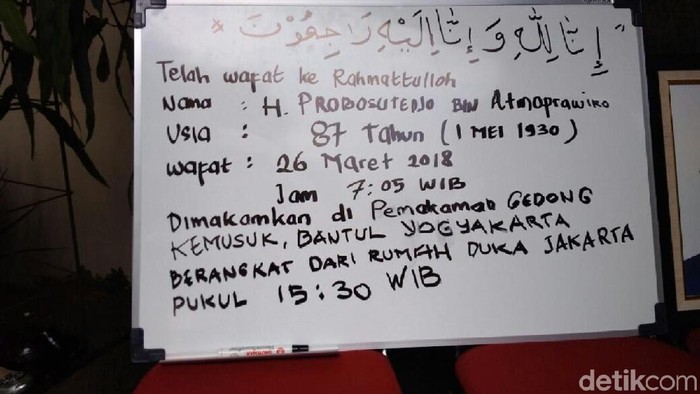 إِنَّا لِلّٰهِ وَ إِنَّا إِلَيْهِ رَاجِعُوْنَ
Telah wafat ke Rahmattulloh
Nama : H. PROBOSUTEDJO BIN Atmoprawiro
Usia : 87 Tahun (1 MEI 1930)
wafat : 26 Maret 2018
Jam 7:05 WIB
Dimakamkan di Pemakaman GEDONG
KEMUSUK, BANTUL YOGYAKARTA
BERANGKAT DARI RUMAH DUKA JAKARTA
PUKUL 15:30 WIB
detikcom